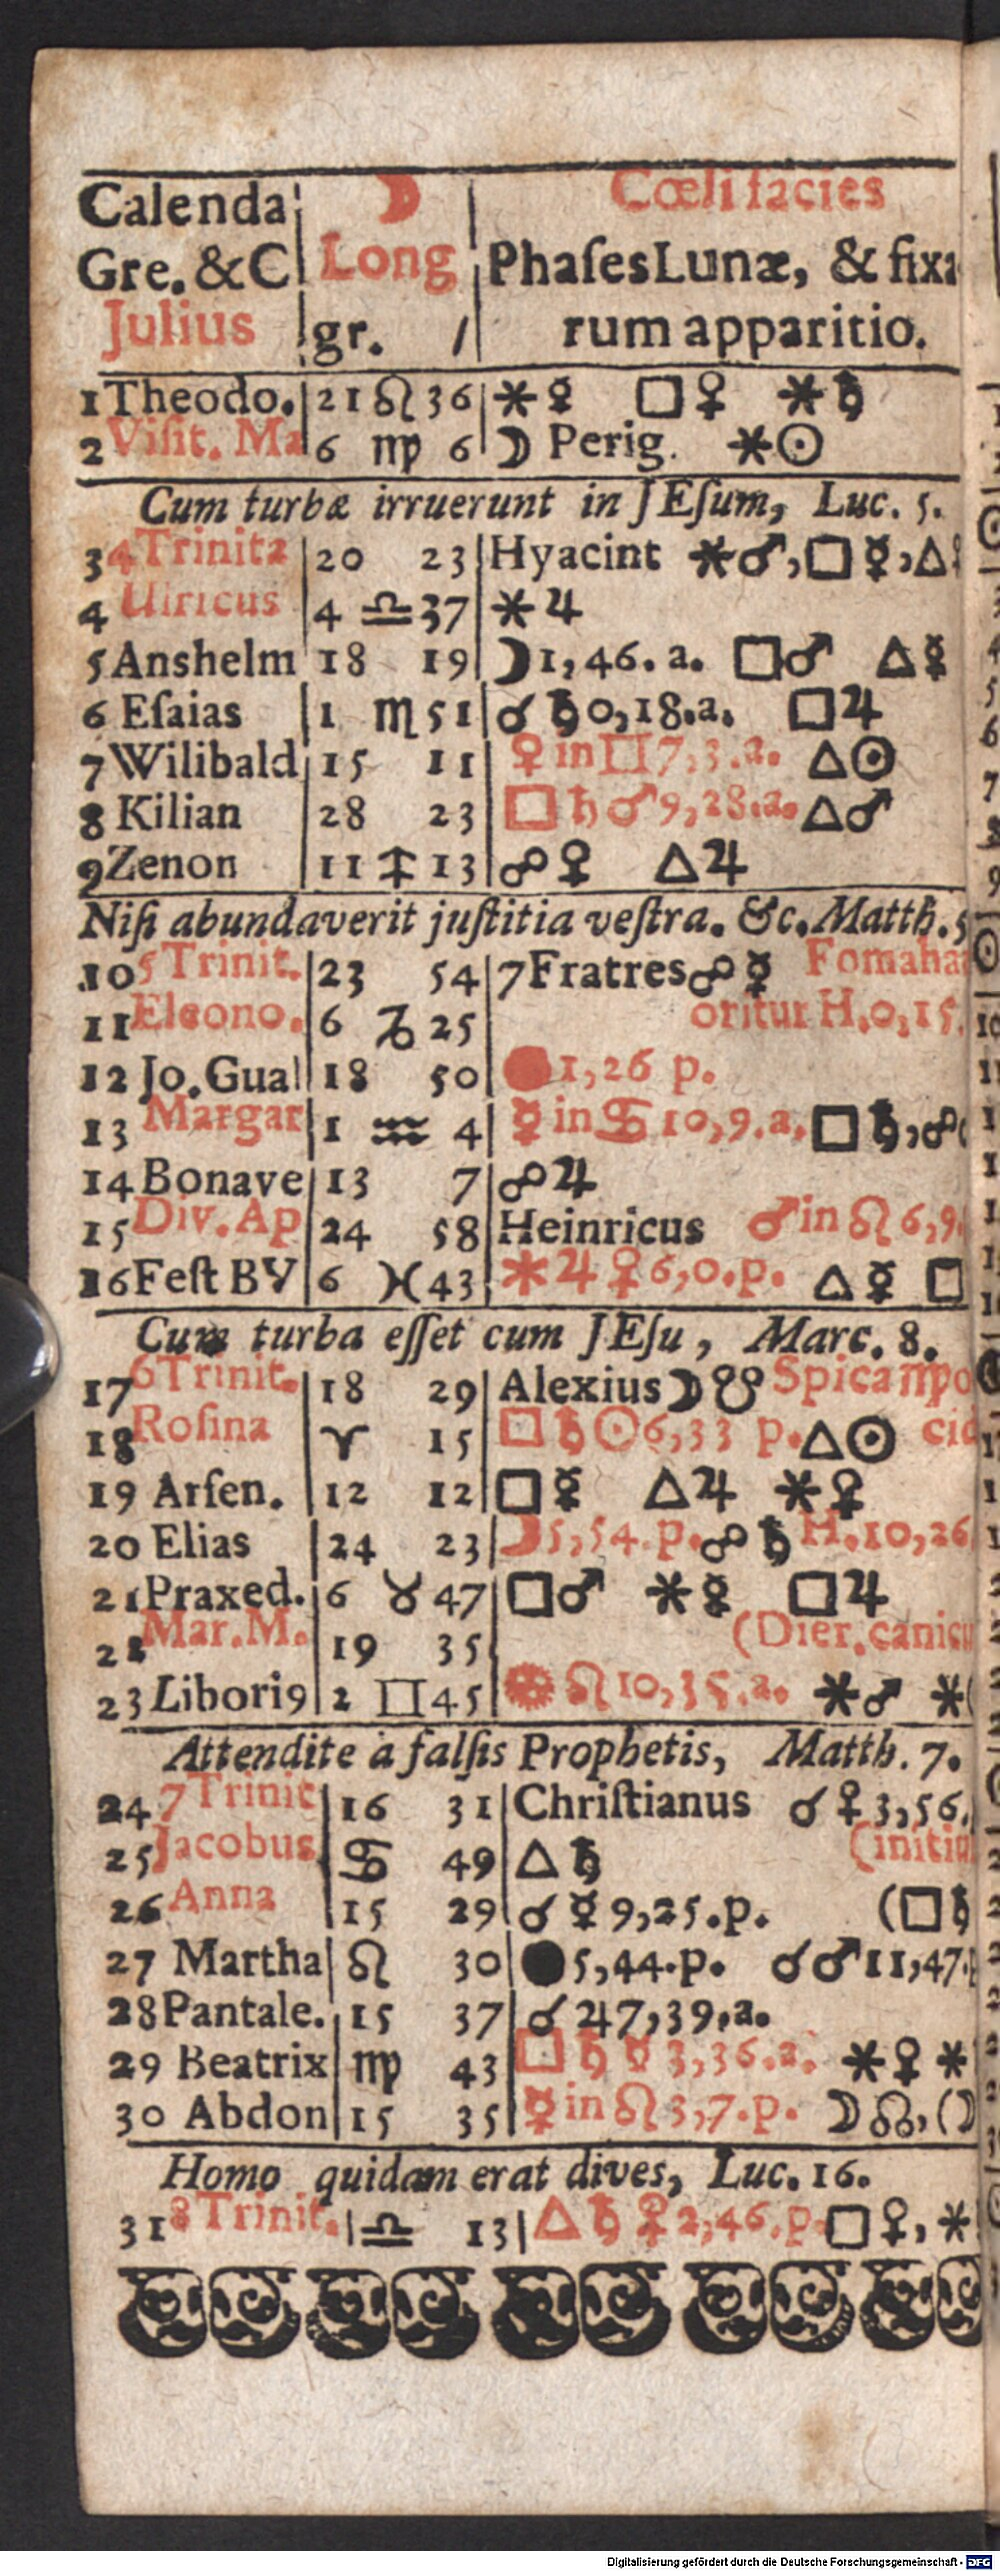 Calenda ☽ Cœli facies
Gre. & C Long Phaſes Lunæ, & fixa
Julius gr. / rum apparitio.
1 Theodo. 21 ♌ 36 ⚹ ☿ □ ♀ ⚹ ♄
2 Viſit. Ma 6 ♍ 6 ☽ Perig. ⚹ ☉
Cum turbæ irruerunt in JEſum, Luc. 5.
3 4 Trinita 20 23 Hyacint ⚹ ♂, □ ☿, △
4 Ulricus 4 ♎ 37 ⚹ ♃
5 Anshelm 18 19 ☽ 1, 46. a. □ ♂ △ ☿
6 Eſaias 1 ♏ 51 ☌ ♄ 0, 18. a. □ ♃
7 Wilibald 15 11 ♀ in ♊ 7, 3. a. △ ☉
8 Kilian 28 23 □ ♄ ♂ 9, 28. a. △ ♂
9 Zenon 11 ♐ 13 ☍ ♀ △ ♃
Niſi abundaverit juſtitia veſtra. &c. Matth. 5
10 5 Trinit. 23 54 7 Fratres ☍ ☿ Fomaha
11 Eleono. 6 ♑ 25 oritur H. 0, 15.
12 Jo. Gual 18 50 ● 1, 26 p.
13 Margar 1 ♒ 4 ☿ in ♋ 10, 9. a. □ ♄, ☍
14 Bonave 13 7 ☍ ♃
15 Div. Ap 24 58 Heinricus ♂ in ♌ 6, 9.
16 Feſt BV 6 ♓ 43 ⚹ ♃ ♀ 6, 0. p. △ ☿ □
Cum turba eſſet cum JEſu, Marc. 8.
17 6 Trinit. 18 29 Alexius ☽ ☋ Spica ♍ o
18 Roſina ♈ 15 □ ♄ ☉ 6, 33 p. △ ☉ cid
19 Arſen. 12 12 □ ☿ △ ♃ ⚹ ♀
20 Elias 24 23 ☽ 5, 54. p. ☍ ♄ H. 10, 26
21 Praxed. 6 ♉ 47 □ ♂ ⚹ ☿ □ ♃
22 Mar. M. 19 35 (Dier. canicu
23 Libori9 2 ♊ 45 ☼ ♌ 10, 35. a. ⚹ ♂ ⚹
Attendite à falſis Prophetis, Matth. 7.
24 7 Trinit 16 31 Chriſtianus ☌ ♀ 3, 56.
25 Jacobus ♋ 49 △ ♄ (initiu
26 Anna 15 29 ☌ ☿ 9, 25. p. (□ ♄
27 Martha ♌ 30 ● 5, 44. p. ☌ ♂ 11, 47.
28 Pantale. 15 37 ☌ ♃ 7, 39, a.
29 Beatrix ♍ 43 □ ♄ ☿ 3, 36. a. ⚹ ♀ ⚹
30 Abdon 15 35 ☿ in ♌ 3, 7. p. ☽ ☊, (☽
Homo quidam erat dives, Luc. 16.
31 8 Trinit. ♎ 13 △ ♄ ♀ 2, 46. p. □ ♀, ⚹
Digitalisierung gefördert durch die Deutsche Forschungsgemeinschaft - DFG